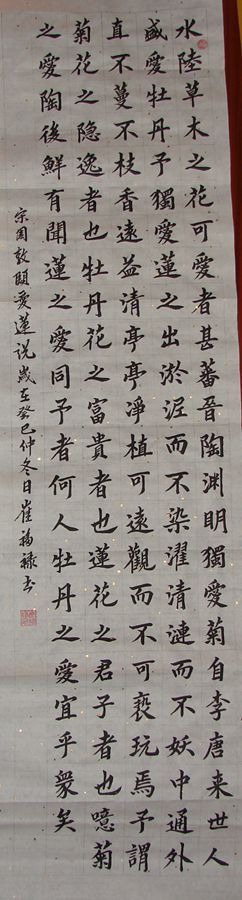 水陸草木之花可愛者甚蕃晉陶渊明獨愛菊自李唐来世人
盛愛牡丹予獨愛蓮之出淤泥而不染濯清漣而不妖中通外
直不蔓不枝香遠益清亭亭凈植可遠觀而不可褻玩焉予謂
菊花之隐逸者也牡丹花之富貴者也蓮花之君子者也噫菊
之愛陶後鮮有聞蓮之愛同予者何人牡丹之愛宜乎衆矣
宋周敦頤爱蓮说嵗在癸巳仲冬日崔福禄书